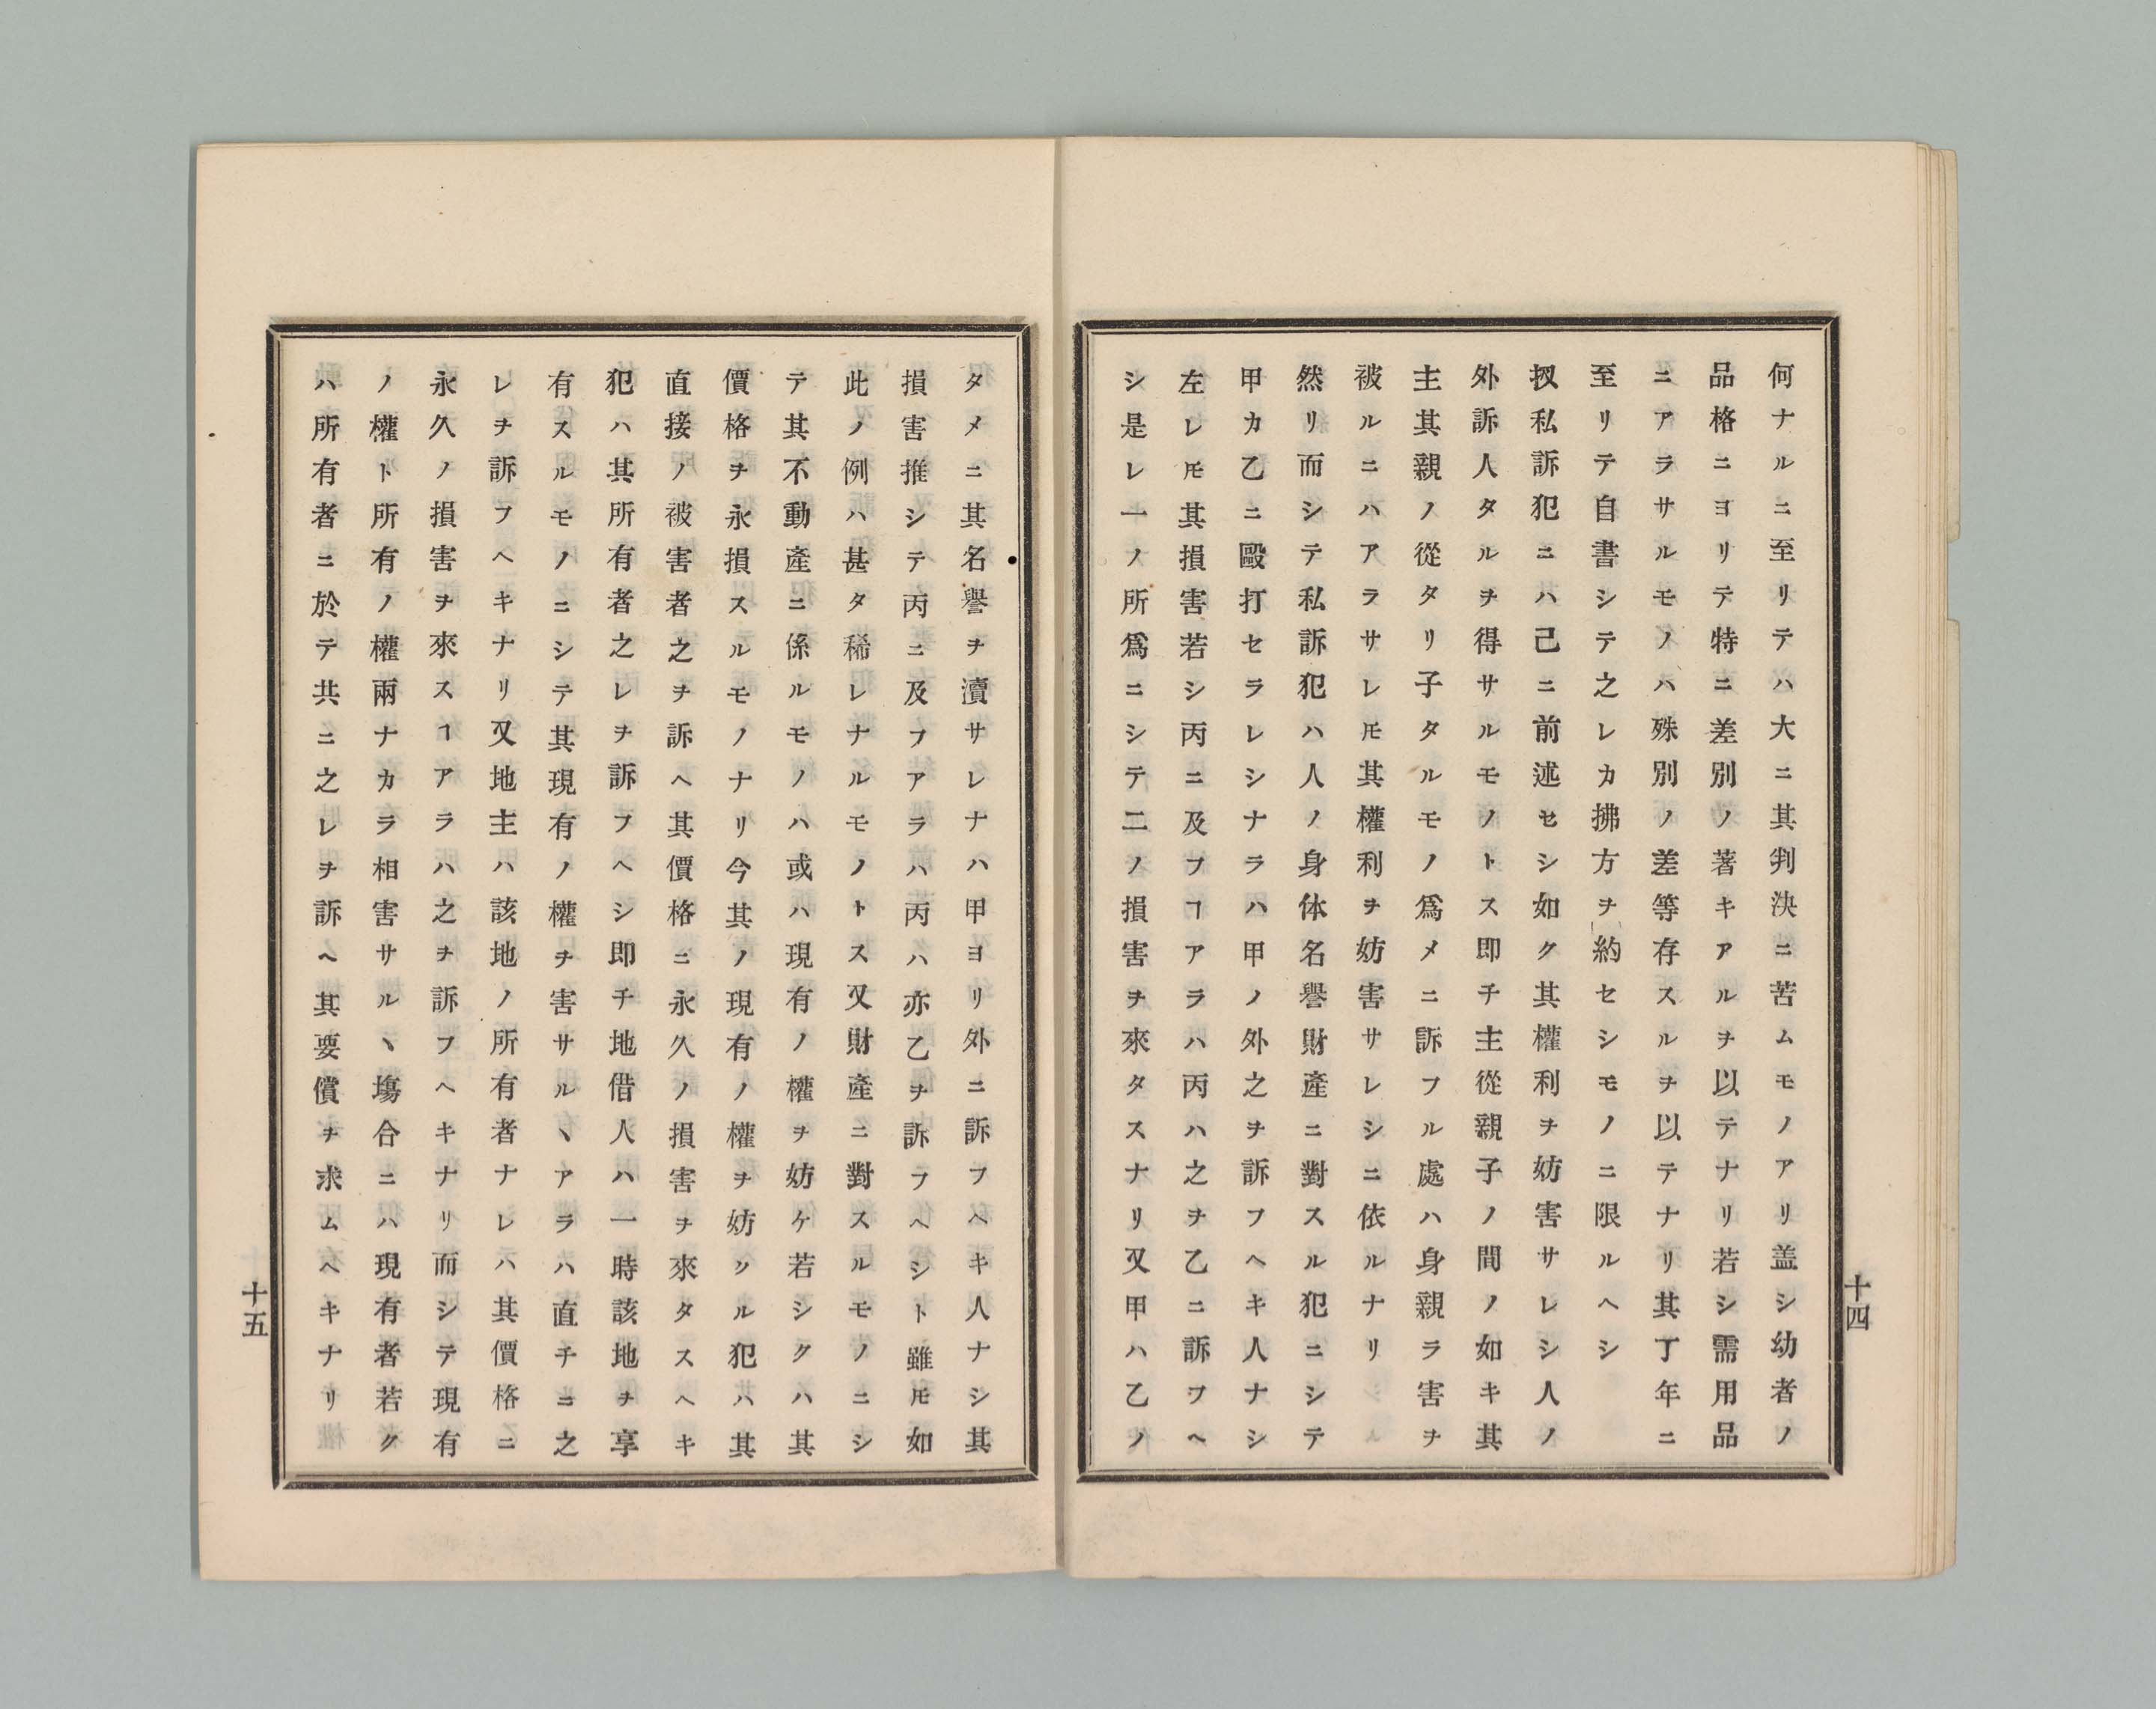 何ナルニ至リテハ大ニ其判決ニ苦ムモノアリ盖シ幼者ノ
品格ニヨリテ特ニ差別ノ著キアルヲ以テナリ若シ需用品
ニアラサルモノハ殊別ノ差等存スルヲ以テナリ其丁年ニ
至リテ自書シテ之レカ拂方ヲ約セシモノニ限ルヘシ
扠私訴犯ニハ己ニ前述セシ如ク其權利ヲ妨害サレシ人ノ
外訴人タルヲ得サルモノトス即チ主從親子ノ間ノ如キ其
主其親ノ從タリ子タルモノノ爲メニ訴フル處ハ身親ラ害ヲ
被ルニハアラサレ𪜈其權利ヲ妨害サレシニ依ルナリ
然リ而シテ私訴犯ハ人ノ身体名譽財產ニ對スル犯ニシテ
甲カ乙ニ毆打セラレシナラハ甲ノ外之ヲ訴フヘキ人ナシ
左レ𪜈其損害若シ丙ニ及フヿアラハ丙ハ之ヲ乙ニ訴フヘ
シ是レ一ノ所爲ニシテ二ノ損害ヲ來タスナリ又甲ハ乙ノ
十四
タメニ其名譽ヲ瀆サレナハ甲ヨリ外ニ訴フヘキ人ナシ其
損害推シテ丙ニ及フアラハ丙ハ亦乙ヲ訴フヘシト雖𪜈如
此ノ例ハ甚タ稀レナルモノトス又財產ニ對スルモノニシ
テ其不動產ニ係ルモノハ或ハ現有ノ權ヲ妨ケ若シクハ其
價格ヲ永損スルモノナリ今其ノ現有ノ權ヲ妨クル犯ハ其
直接ノ被害者之ヲ訴ヘ其價格ニ永久ノ損害ヲ來タスヘキ
犯ハ其所有者之レヲ訴フヘシ即チ地借人ハ一時該地ヲ享
有スルモノニシテ其現有ノ權ヲ害サルヽアラハ直チニ之
レヲ訴フヘキナリ又地主ハ該地ノ所有者ナレハ其價格ニ
永久ノ損害ヲ來スヿアラハ之ヲ訴フヘキナリ而シテ現有
ノ權ト所有ノ權兩ナカラ相害サルヽ塲合ニハ現有者若ク
ハ所有者ニ於テ共ニ之レヲ訴ヘ其要償ヲ求ムヘキナリ
十五